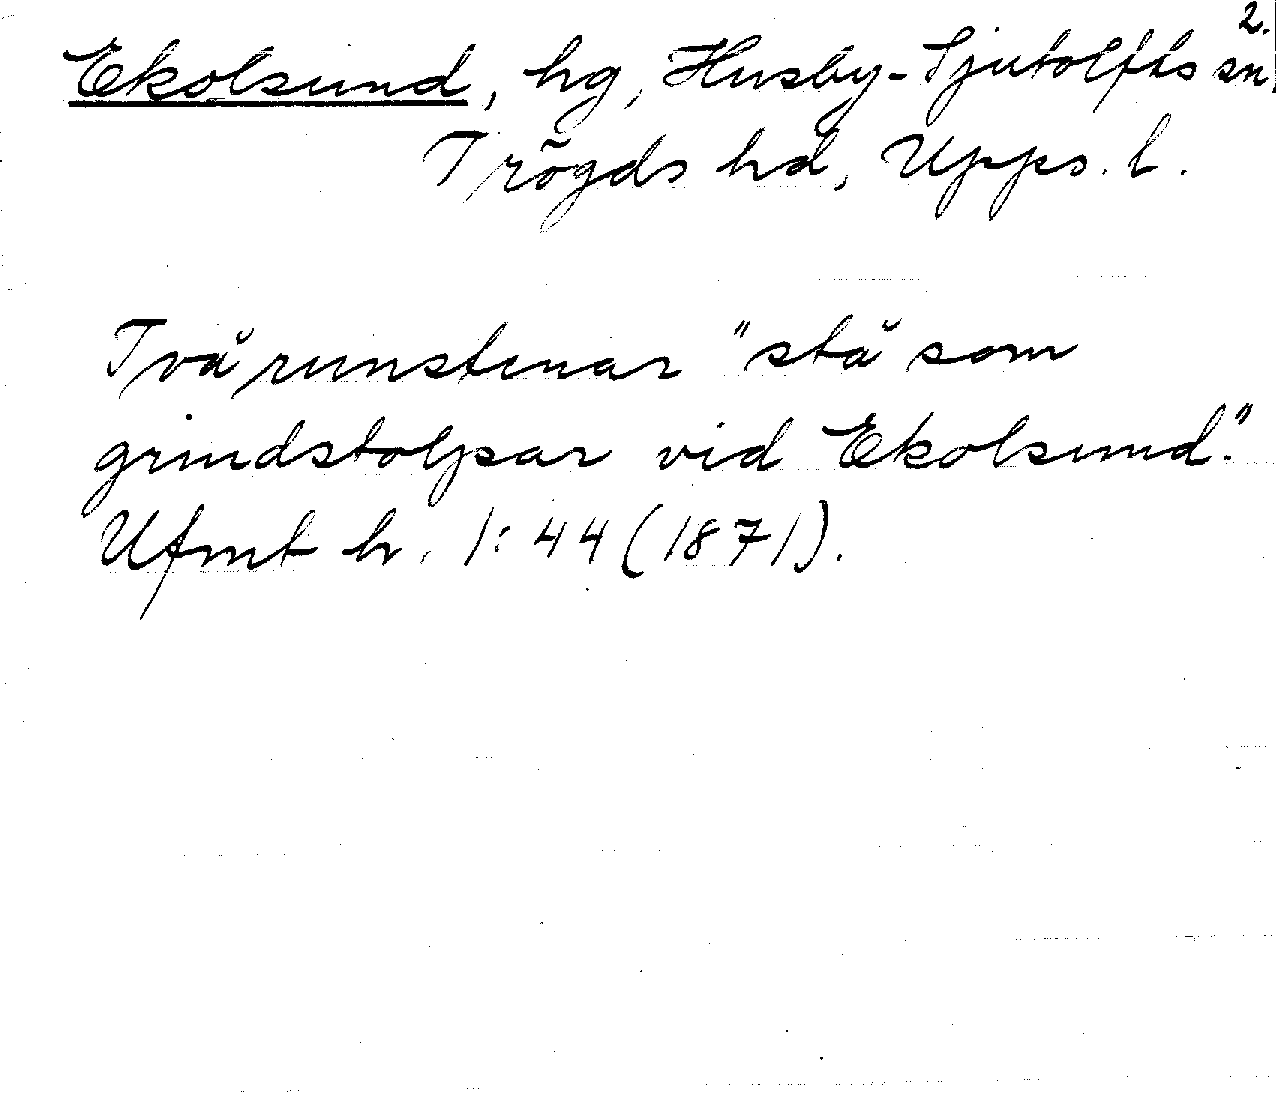 2.
Ekolsund, hg, Husby-Sjutolfts sn,
Trögds hd, Upps. l.
Två runstenar "stå som
grindstolpar vid Ekolsund."
Ufmt h. 1:44 (1871).